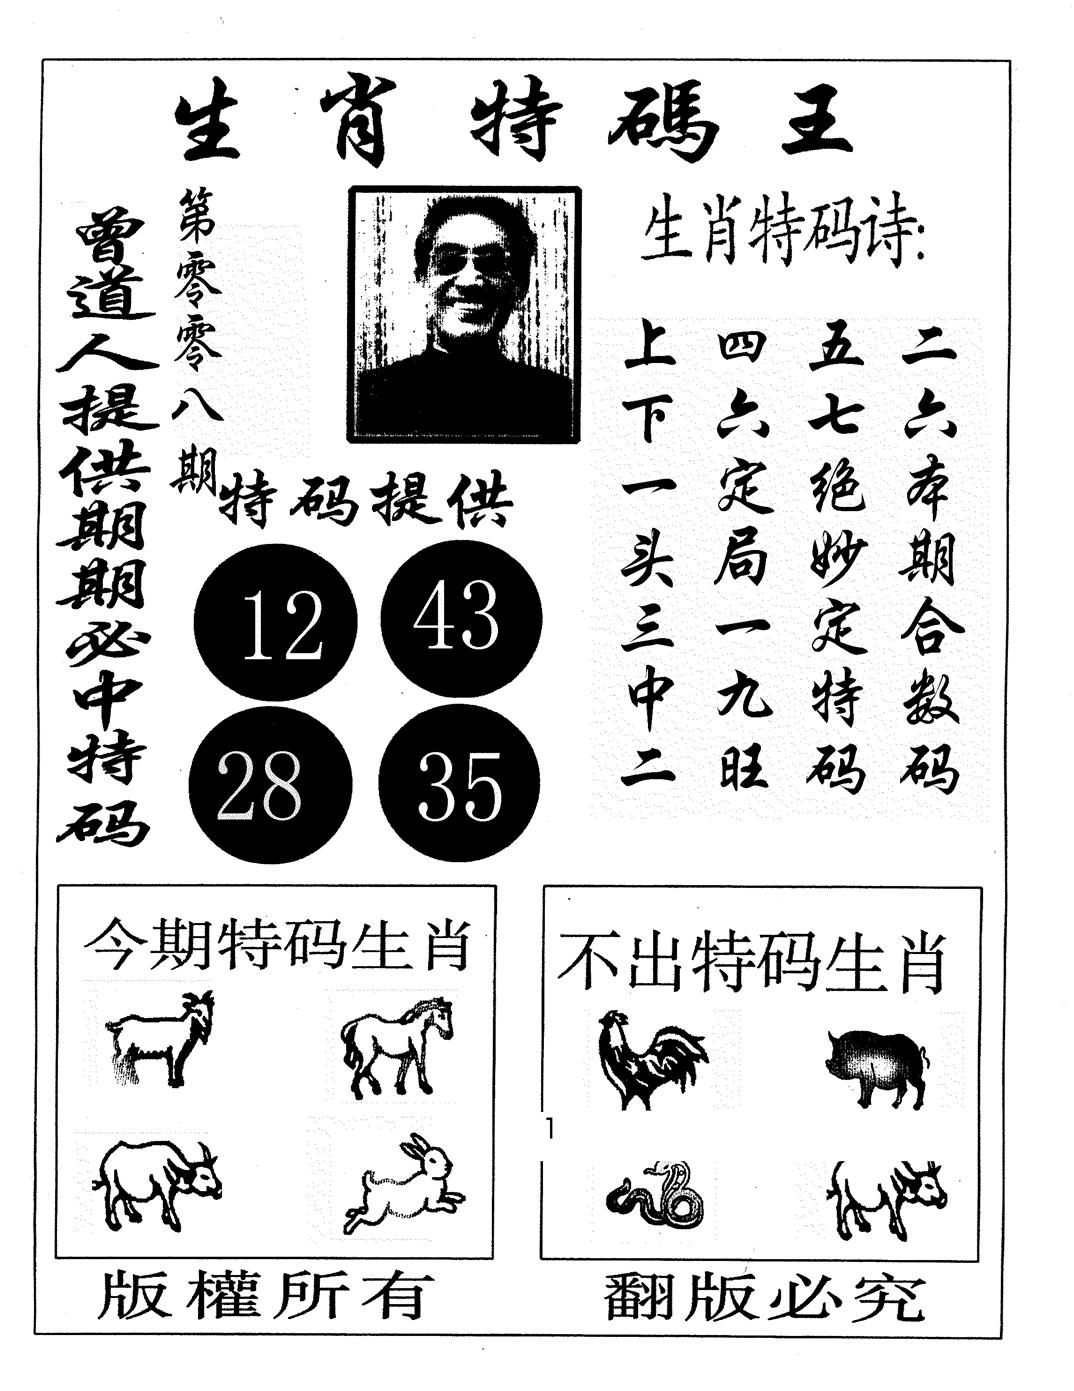 生肖特碼王
曾道人提供期期必中特码
第零零八期
特码提供
12
43
28
35
生肖特码诗:
二六本期合数码
五七绝妙定特码
四六定局一九旺
上下一头三中二
今期特码生肖
不出特码生肖
1
版權所有
翻版必究